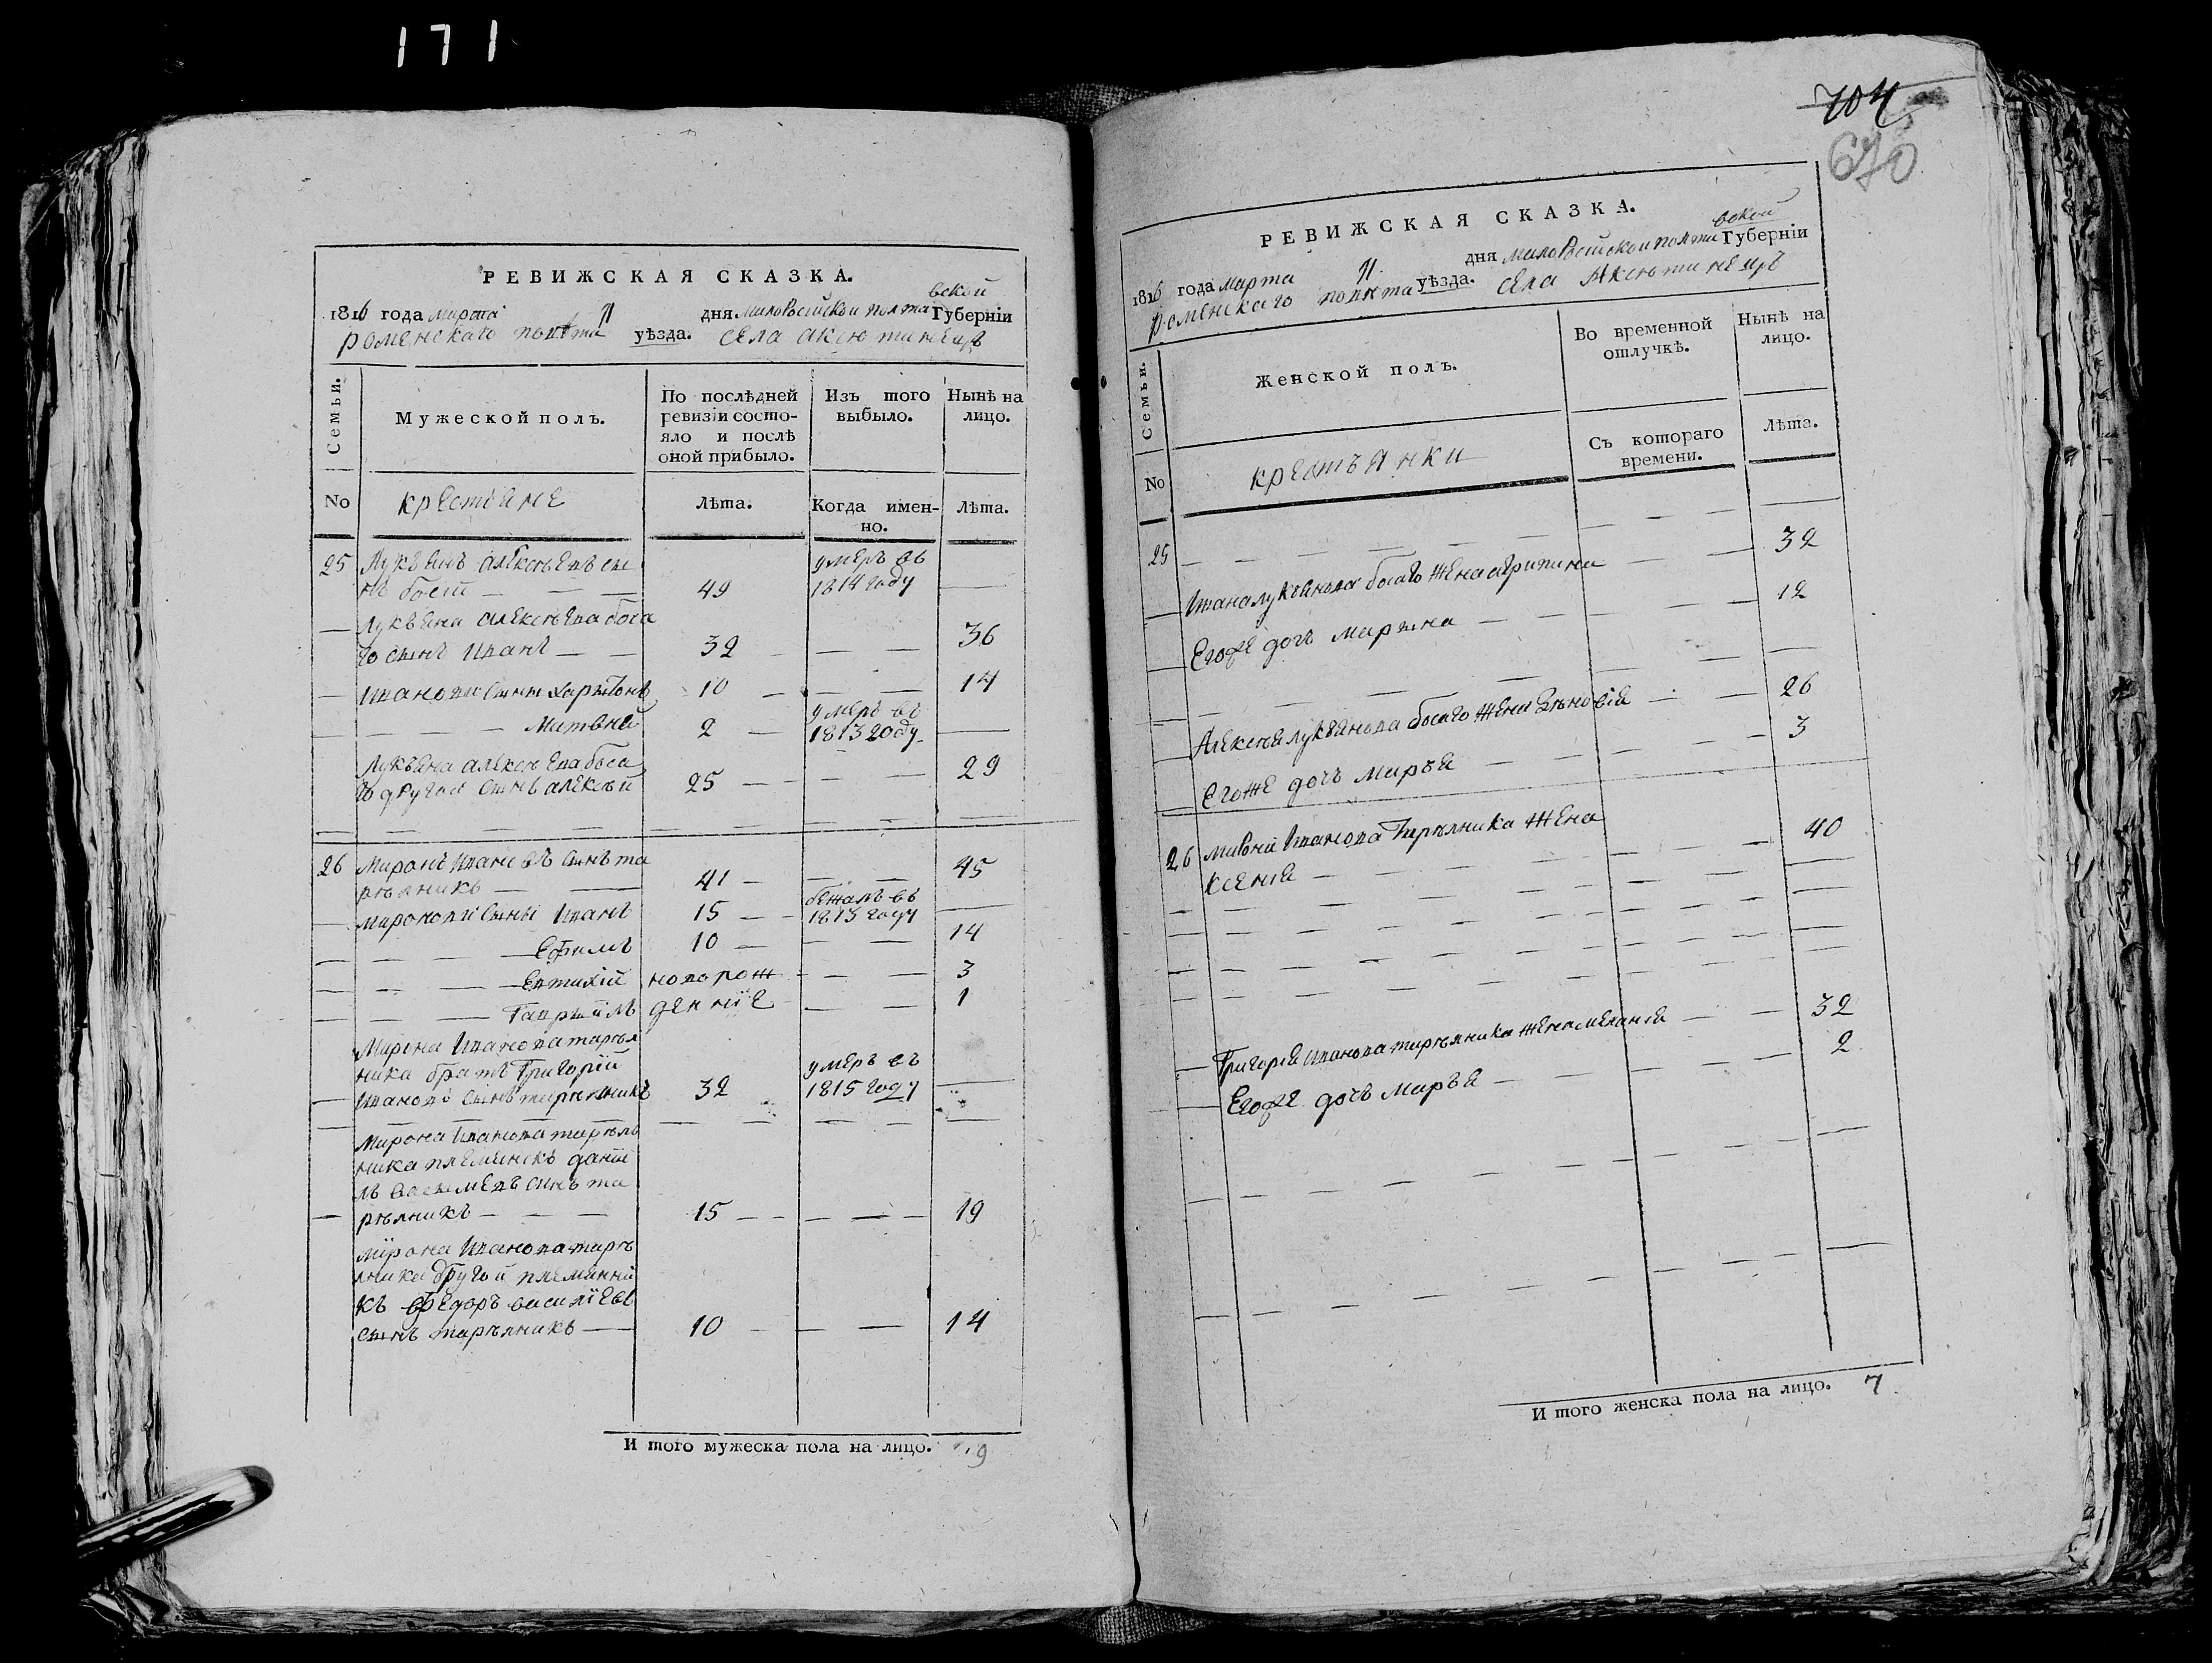 171
РЕВИЖСКАЯ СКАЗКА.
вской
1816 года марта дня малоросiйской полта Губернiи
роменского повѣта уѣзда. села аксютинецъ
Семьи.
Мужеской полъ.
По послѣдней
ревизiи состо-
яло и послѣ
оной прибыло.
Изъ того
выбыло.
Нынѣ на
лицо.
No крестьяне Лѣта. Когда имен-
но. Лѣта.
25 Лукъянъ алексѣевъ сы умеръ въ
нъ босый 49 1814 году
Лукъяна алексѣева боса
го сынъ иванъ 32 36
ивановы сыны харитонъ 10 14
умеръ въ
Матвѣй 2 1813 году
Лукъяна алексѣева боса
го другой сынъ алексѣй 25 29
26 Миронъ ивановъ сынъ та
рѣлникъ 41 45
бежалъ въ
мироновы сыны иванъ 15 1813 году
Ефимъ 10 14
Евтихiй новорож 3
Гаврiилъ деннiе 1
Мирона иванова тарѣл
ника братъ Григорiй умеръ въ
ивановъ сынъ тарѣлникъ 32 1815 году
Мирона иванова тарѣл
ника племѣнекъ данiи
лъ васильевъ синъ та
рѣлникъ 15 19
мiрона иванова тарѣ
лника другой племѣннi
къ федоръ василiевъ
сынъ тарѣлникъ 10 14
И того мужеска пола на лицо. 9
704
670
РЕВИЖСКАЯ СКАЗКА.
вской
1816 года марта дня малоросiйской полта Губернiи
роменского повѣта уѣзда. села Аксютинецъ
Семьи.
Женской полъ.
Во временной
отлучкѣ.
Нынѣ на
лицо.
No крестьянки Съ котораго
времени. Лѣта.
25
Ивана лукъянова босаго жена агрипина 32
Егоже дочъ марина 12
Алексѣя лукъянова босаго жена Зѣновiя 26
Егоже дочъ маръя 3
26 Мирона Иванова Тарѣлника жена
ксенiя 40
Григорiя иванова тарѣлника жена меланiя 32
Егоже дочъ маръя 2
И того женска пола на лицо. 7